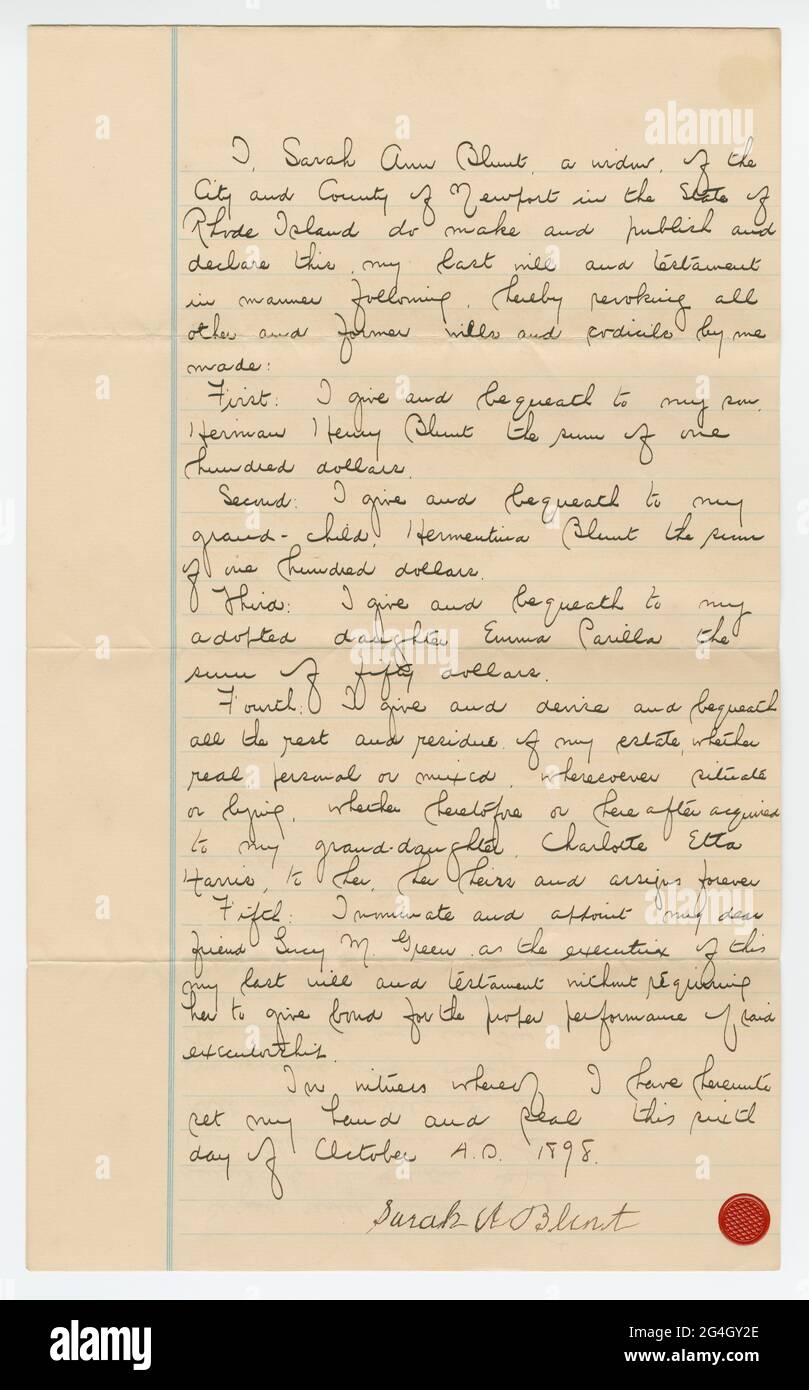 I, Sarah Ann Blunt, a widow, of the
City and County of Newport in the State of
Rhode Island do make and publish and
declare this, my last will and testament
in manner following, hereby revoking all
other and former wills and codicils by me
made:
First: I give and bequeath to my son,
Herman Henry Blunt the sum of one
hundred dollars.
Second: I give and bequeath to my
grand-child, Hermentina Blunt the sum
of one hundred dollars.
Third: I give and bequeath to my
adopted daughter Emma Parilla the
sum of fifty dollars.
Fourth: I give and devise and bequeath
all the rest and residue of my estate, whether
real, personal or mixed, wheresoever situate
or lying, whether heretofore or hereafter acquired
to my grand-daughter, Charlotte Etta
Harris, to her, her heirs and assigns forever
Fifth: I nominate and appoint my dear
friend Lucy M. Green as the executrix of this
my last will and testament without requiring
her to give bond for the proper performance of said
executorship.
In witness whereof, I have hereunto
set my hand and seal this sixth
day of October A.D. 1898.
Sarah A Blunt
alamy
Image ID: 2G4GY2E
www.alamy.com